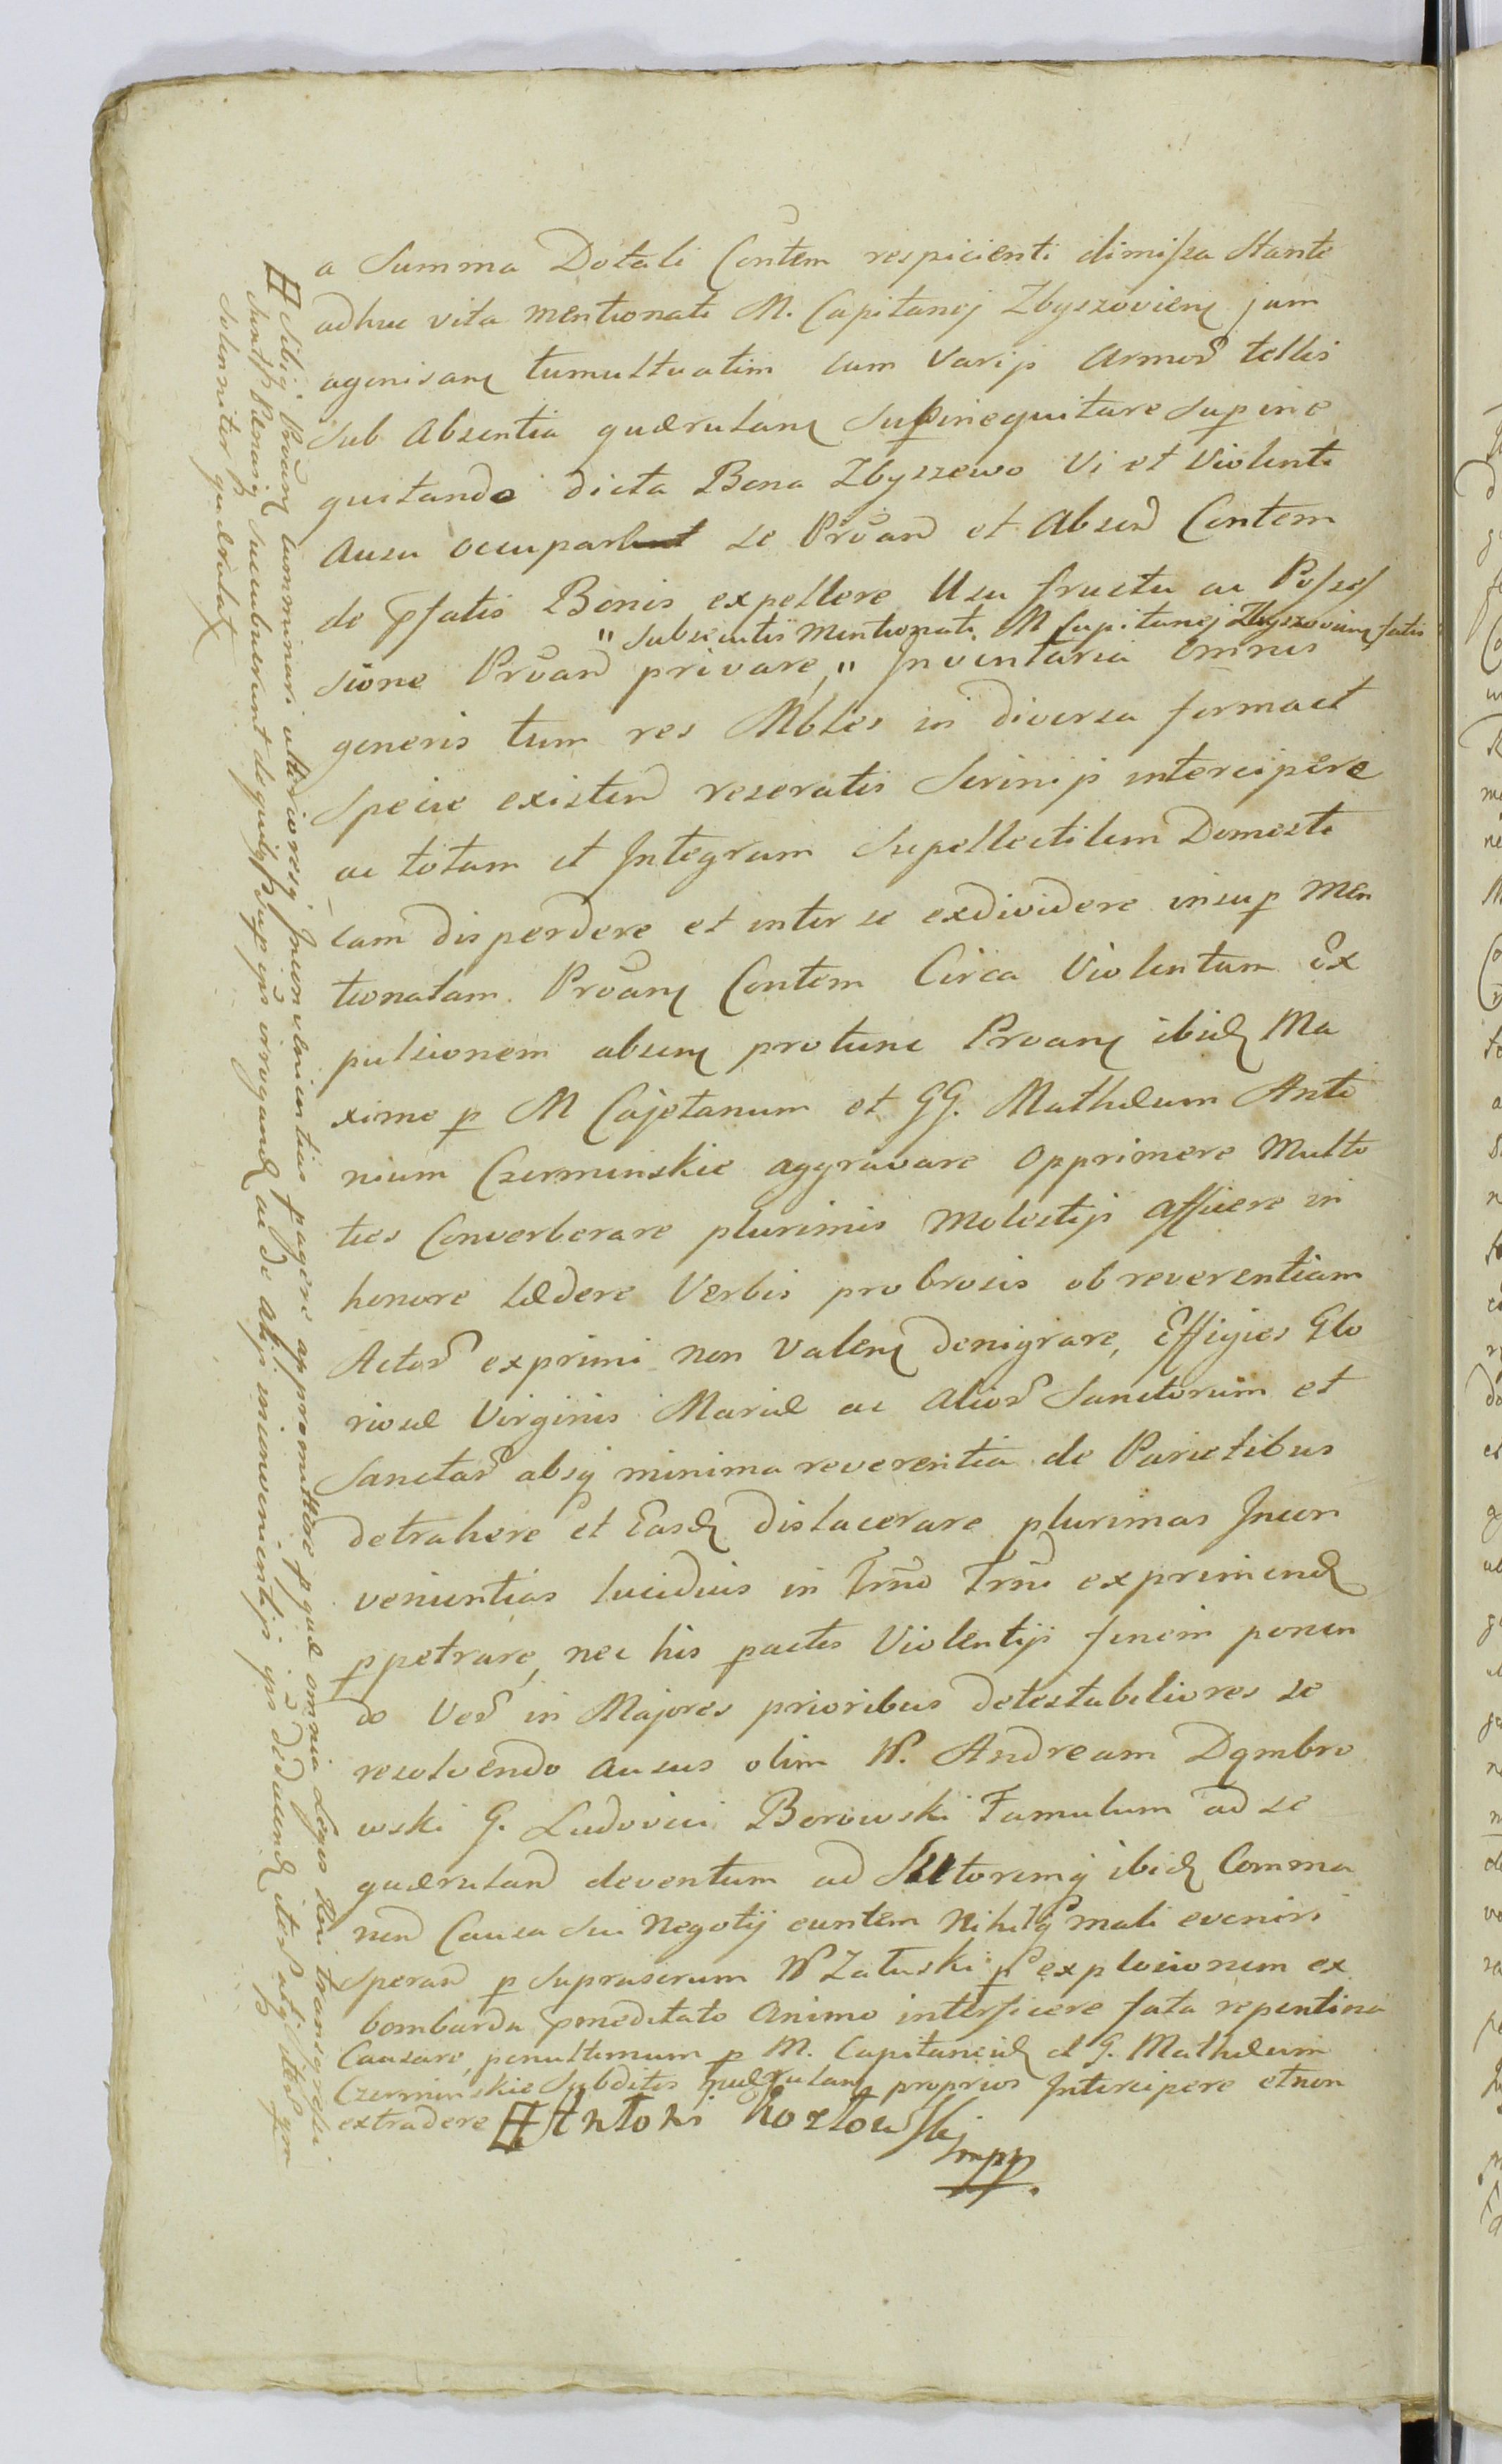 a Summa Dotali Contem respicienti dimissa stante
adhuc vita mentionati M. Capitanej Zbyszovien jam
agonisan tumultuatim cum Varijs Armor tellis
sub Absentia quærulan supinequitare supine
quitando dicta Bona Zbyszewo Vi et Violenti
Ausu occupar se Prōan et Absen Contem
de pfatis Bonis expellere Usu fructu ac Posses
" subsecutis Mentionati M Capitanej Zbyszovien fatis
sione Prōan privare, " Inventaria omnis
generis tum res Mbles in diversa forma et
specie existen reseratis Scrinijs intercipere
ac totam et Integram Supellectilem Domesti
cam disperdere et inter se exdividere insup Men
tionatam Prōan Contem Circa Violentam Ex
pulsionem absen protunc Proan ibid Ma
xime p M Cajetanum et GG. Mathæum Anto
nium Czerminskie aggravare Opprimere Multo
ties Converberare plurimis Molestijs Afficere in
honore lædere Verbis probrosis ob reverentiam
Actor exprimi non Valen denigrare, Effigies Glo
riosæ Virginis Mariæ ac Alior Sanctorum et
Sanctar absq minima reverentia de Parietibus
detrahere et Easd dislacerare plurimas Incon
venientias lucidius in Trno Trni exprimend
ppetrare, nec his pactis Violentijs finem ponen
do Ver in Majores prioribus detestabiliores se
resolvendo ausus olim W. Andream Dąmbro
wski G. Ludovici Borowski Famulum ad se
quærulan deventum ad Sutoremq ibid Comma
nen Causa sui Negotij euntem Nihilq mali eveniri
speran p Suprascrum W Załuski p explosionem ex
bombarda pmeditato Animo interficere fata repentina
Causare, penultimum p M. Capitaneid et G. Mathæum
Czerminskie Subditos quærulan proprios Intercipere et non
extradere # Antoni Kozłowski
mpp.
# Sibiq Prōan comminari ulterioresq Inconvenientias pagere appromittere p quæ omnia Legis Rni transgressi
sunt Pœnasq succubuerunt de quibus sup ijs irrogand ac de alijs inconvenientijs ijs deducend iter atq iter qm
solenniter quærulatr